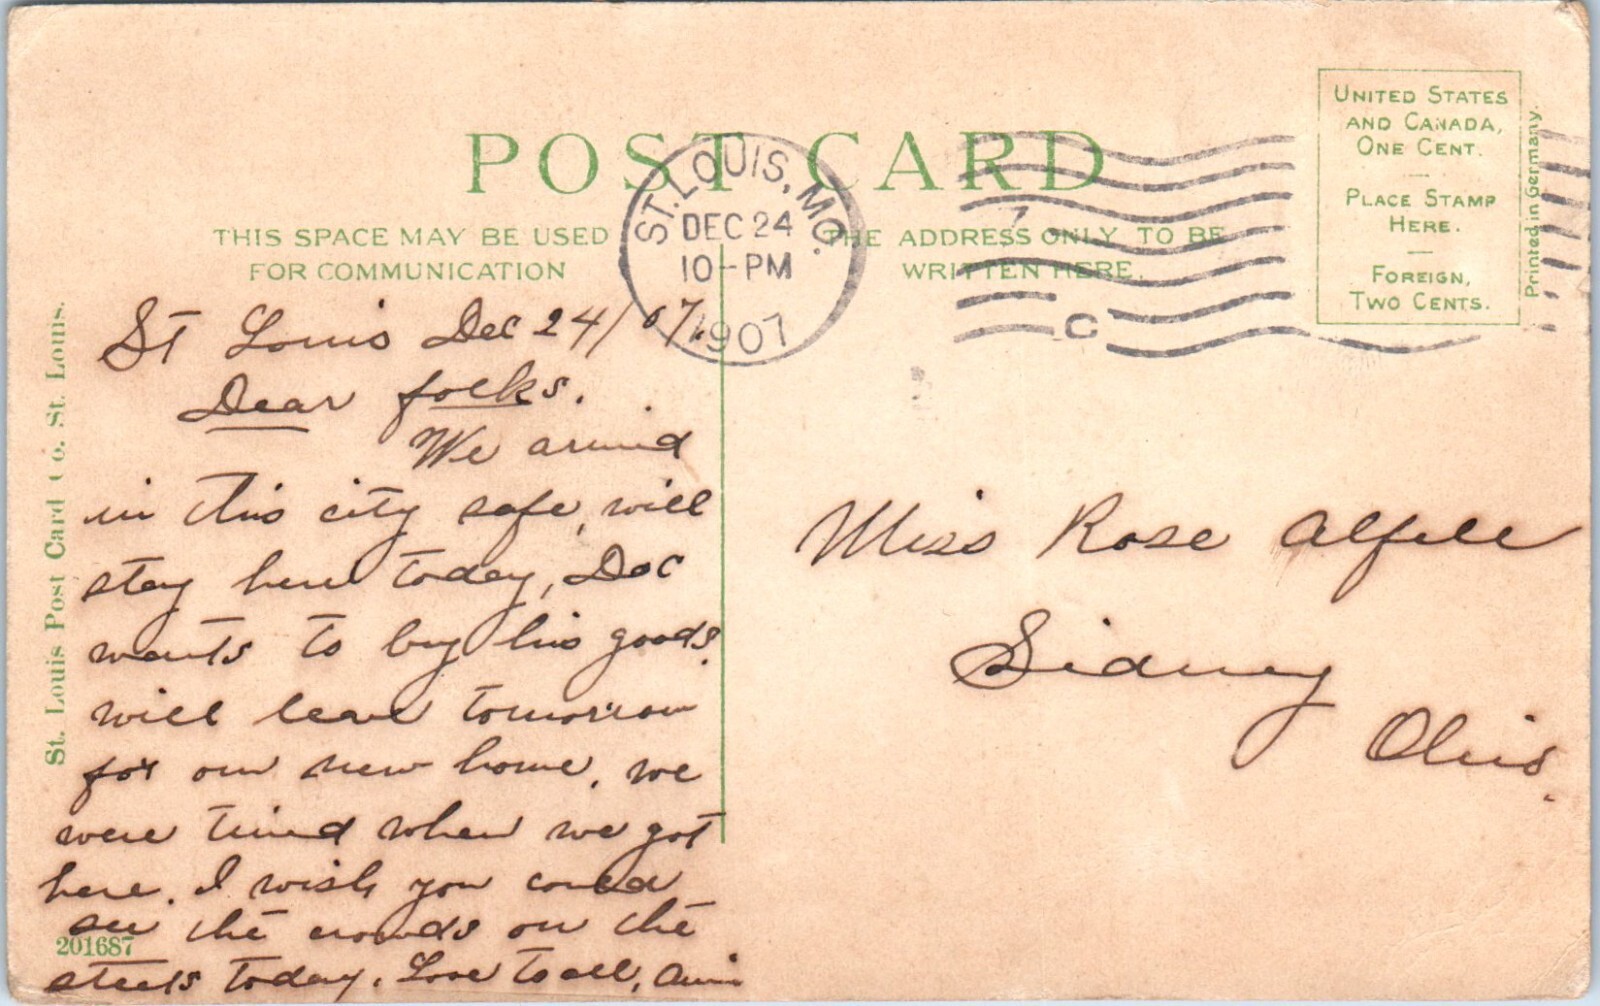 POST CARD
THIS SPACE MAY BE USED
FOR COMMUNICATION
THE ADDRESS ONLY TO BE
WRITTEN HERE.
UNITED STATES
AND CANADA,
ONE CENT.
PLACE STAMP
HERE.
FOREIGN,
TWO CENTS.
Printed in Germany.
ST. LOUIS, MO.
DEC 24
10-PM
1907
7
C
St. Louis Post Card Co. St. Louis.
St Louis Dec 24/07.
Dear folks.
We arrived
in this city safe, will
stay here today, Doc
wants to buy his goods.
will leave tomorrow
for our new home, we
were tired when we got
here. I wish you could
see the crowds on the
streets today. Love to all,
201687
Miss Rose
Sidney
Ohio.